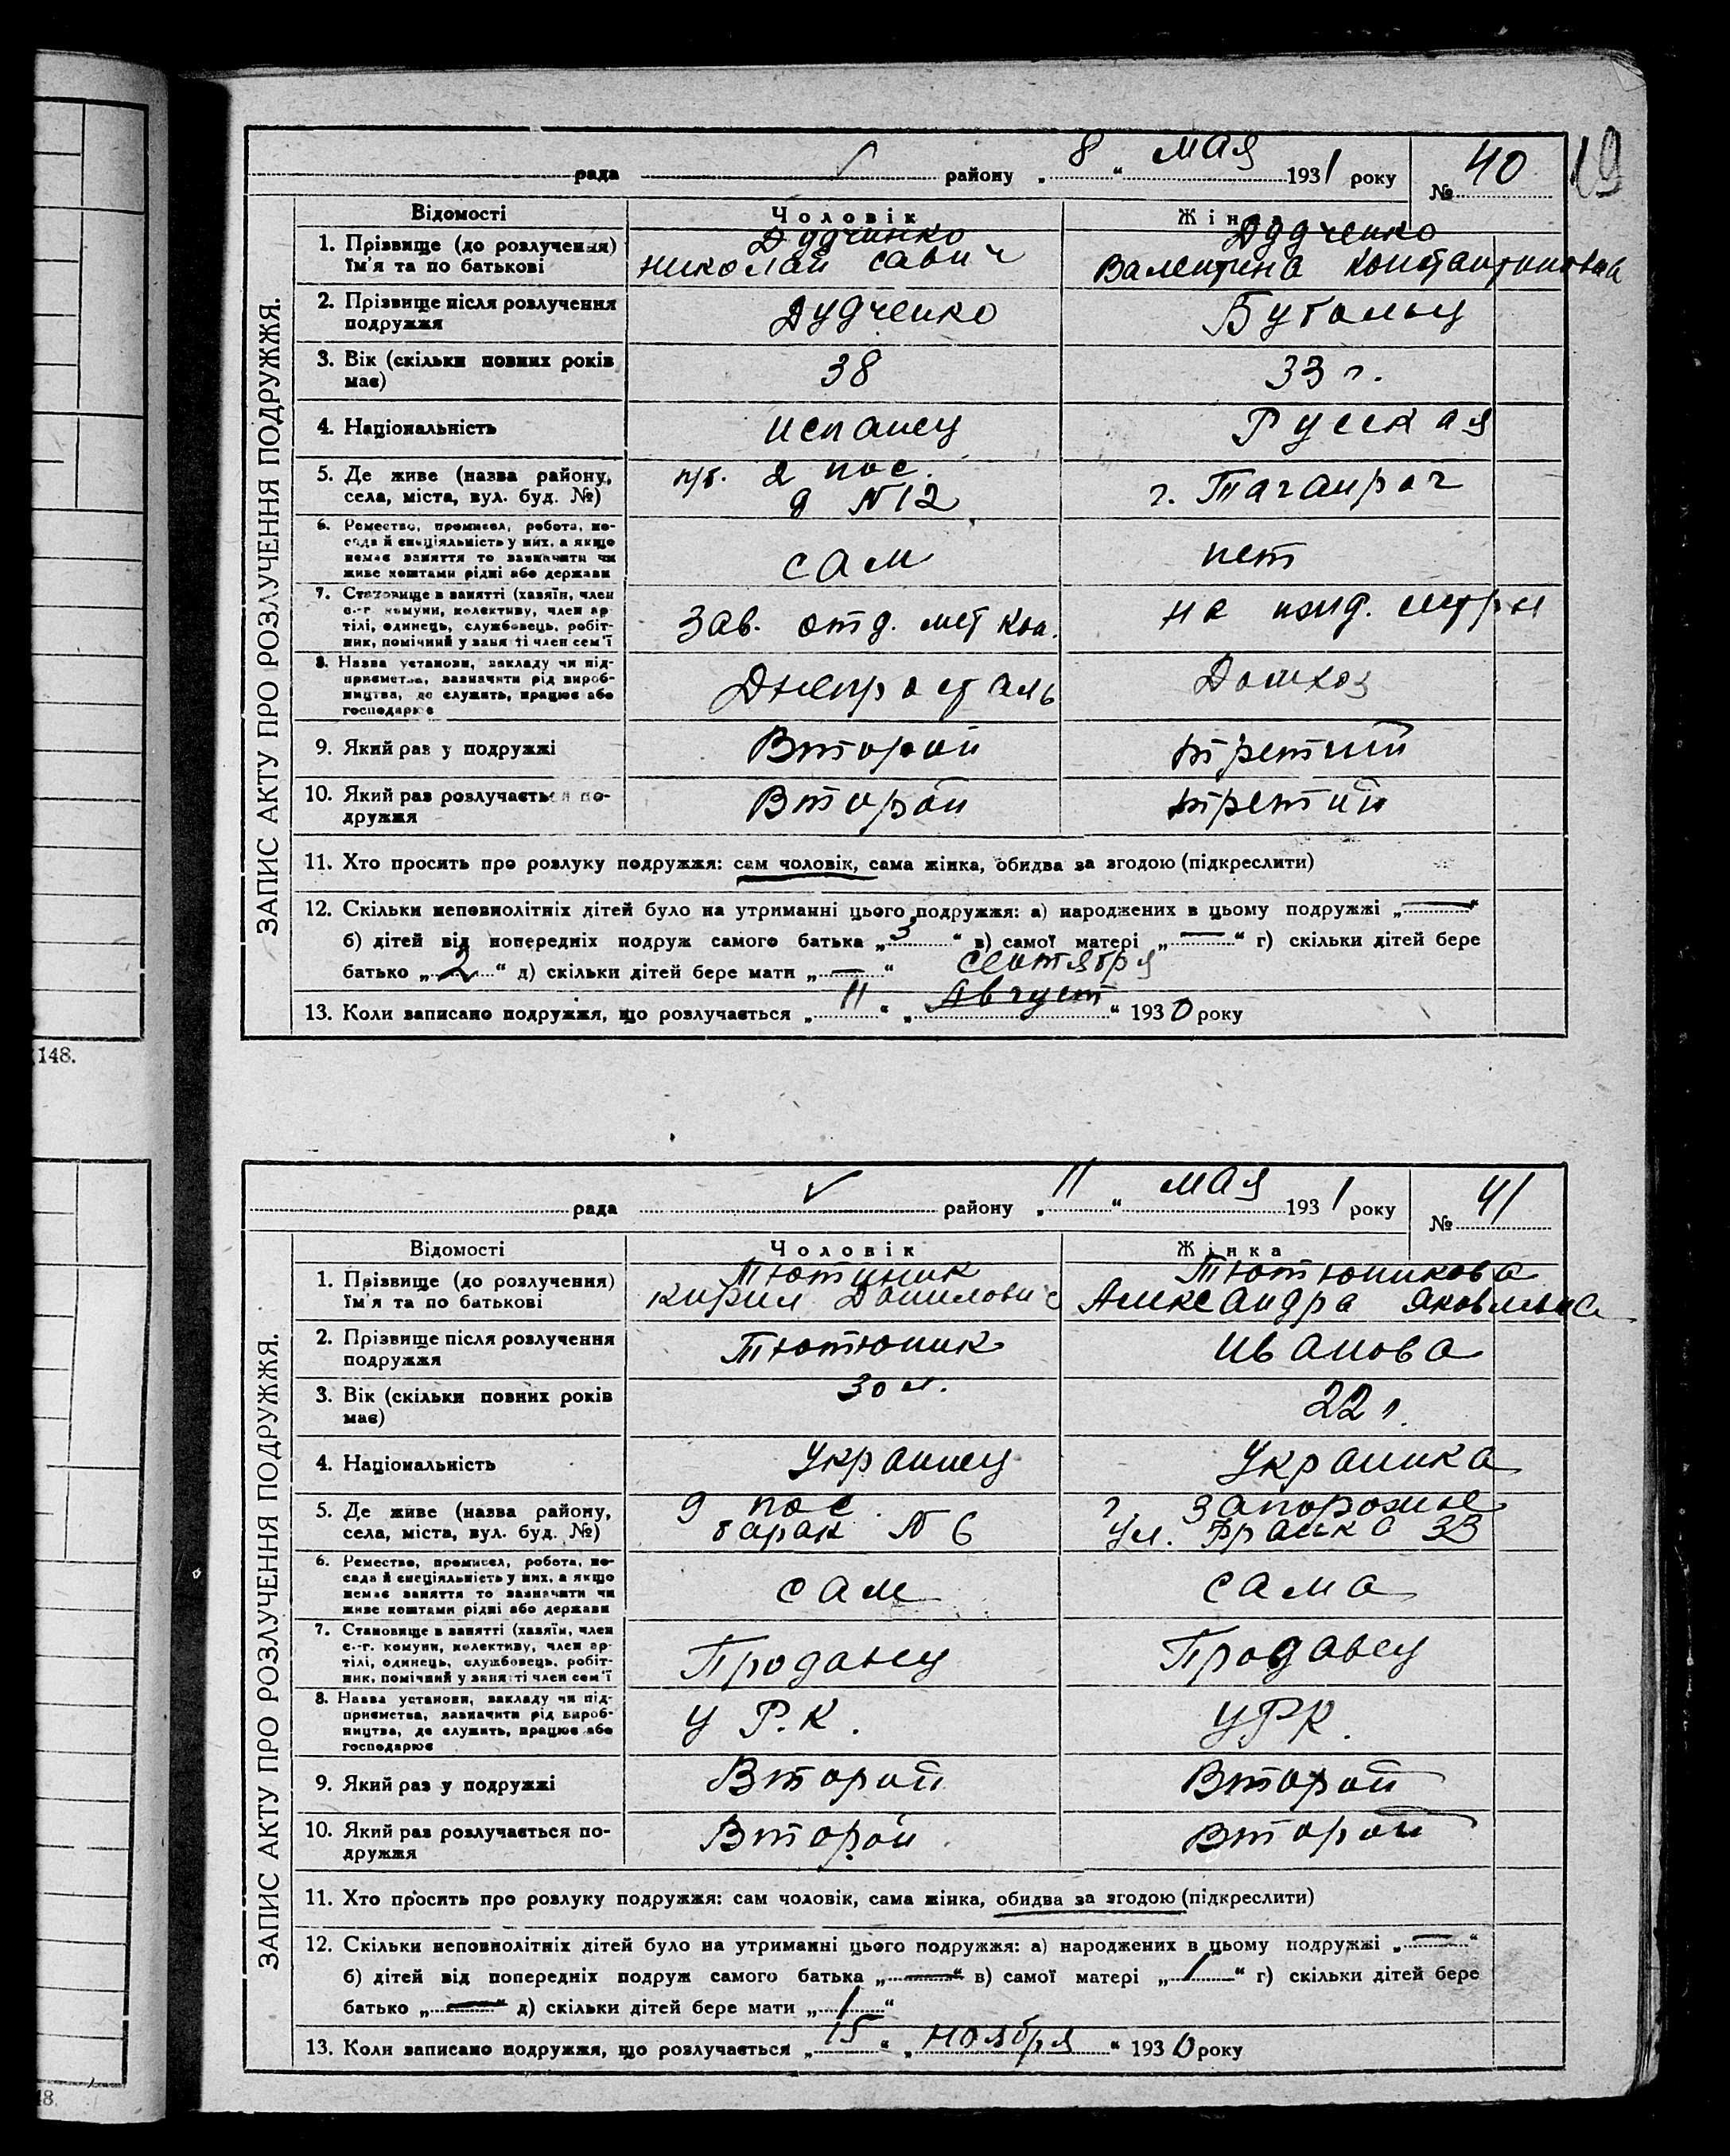 8 мая
рада района „ “ 1931 року № 40
19
ЗАПИС АКТУ ПРО РОЗЛУЧЕННЯ ПОДРУЖЖЯ.
Відомості Чоловік Жін
1. Прізвище (до розлучення) Ім'я та по батькові
Дудчинко
николай савич
Дудченко
Валентина Константиновна
2. Прізвище після розлучення подружжя
Дудченко
3. Вік (скільки повних років має)
38
33 г.
4. Національність
испанец
Русская
5. Де живе (назва району, села, міста, вул. буд. №)
2 пос.
д N 12
г. Таганрог
6. Ремество, промисел, робота, по-
сада й спеціяльність у них, а якщо
немає заняття то зазначити чи
живе коштами рідні або держави
сам
нет
7. Становище в занятті (хазяїн, член
с.-г. комуни, колективу, член ар-
тілі, одинець, службовець, робіт-
ник, помічний у занятті член сем'ї
Зав. отд. мет кон.
на ижд.
8. Назва установи, закладу чи під-
приємства, зазначити рід вироб-
ництва, де служить, працює або
господарює
Днепросталь
Домхоз
9. Який раз у подружжі
Второй
третий
10. Який раз розлучається по-
дружжя
Второй
третий
11. Хто просить про розлуку подружжя: сам чоловік, сама жінка, обидва за згодою (підкреслити)
12. Скільки неповнолітніх дітей було на утриманні цього подружжя: а) народжених в цьому подружжі „—“
б) дітей від попередніх подруж самого батька „3“ в) самої матері „—“ г) скільки дітей бере
батько „2“ д) скільки дітей бере мати „—“
сентября
13. Коли записано подружжя, що розлучається „11“ „Август“ 1930 року
148.
11 мая
рада району „ “ 1931 року № 41
ЗАПИС АКТУ ПРО РОЗЛУЧЕННЯ ПОДРУЖЖЯ.
Відомості Чоловік Жінка
1. Прізвище (до розлучення) Ім'я та по батькові
Тютюник
кирил Данилович
Тютюникова
Александра Яковлевна
2. Прізвище після розлучення подружжя
Тютюник
Иванова
3. Вік (скільки повних років має)
30 л.
22 г.
4. Національність
Украинец
Украинка
5. Де живе (назва району, села, міста, вул. буд. №)
9 пос.
барак N 6
г. Запорожье
ул. Франко 33
6. Ремество, промисел, робота, по-
сада й спеціяльність у них, а якщо
немає заняття то зазначити чи
живе коштами рідні або держави
сам
сама
7. Становище в занятті (хазяїн, член
с.-г. комуни, колективу, член ар-
тілі, одинець, службовець, робіт-
ник, помічний у занятті член сем'ї
Продавец
Продавец
8. Назва установи, закладу чи під-
приємства, зазначити рід вироб-
ництва, де служить, працює або
господарює
У Р.К.
УРК.
9. Який раз у подружжі
Второй
Второй
10. Який раз розлучається по-
дружжя
Второй
Второй
11. Хто просить про розлуку подружжя: сам чоловік, сама жінка, обидва за згодою (підкреслити)
12. Скільки неповнолітніх дітей було на утриманні цього подружжя: а) народжених в цьому подружжі „—“
б) дітей від попередніх подруж самого батька „—“ в) самої матері „1“ г) скільки дітей бере
батько „—“ д) скільки дітей бере мати „1“
13. Коли записано подружжя, що розлучається „15“ „ноября“ 1930 року